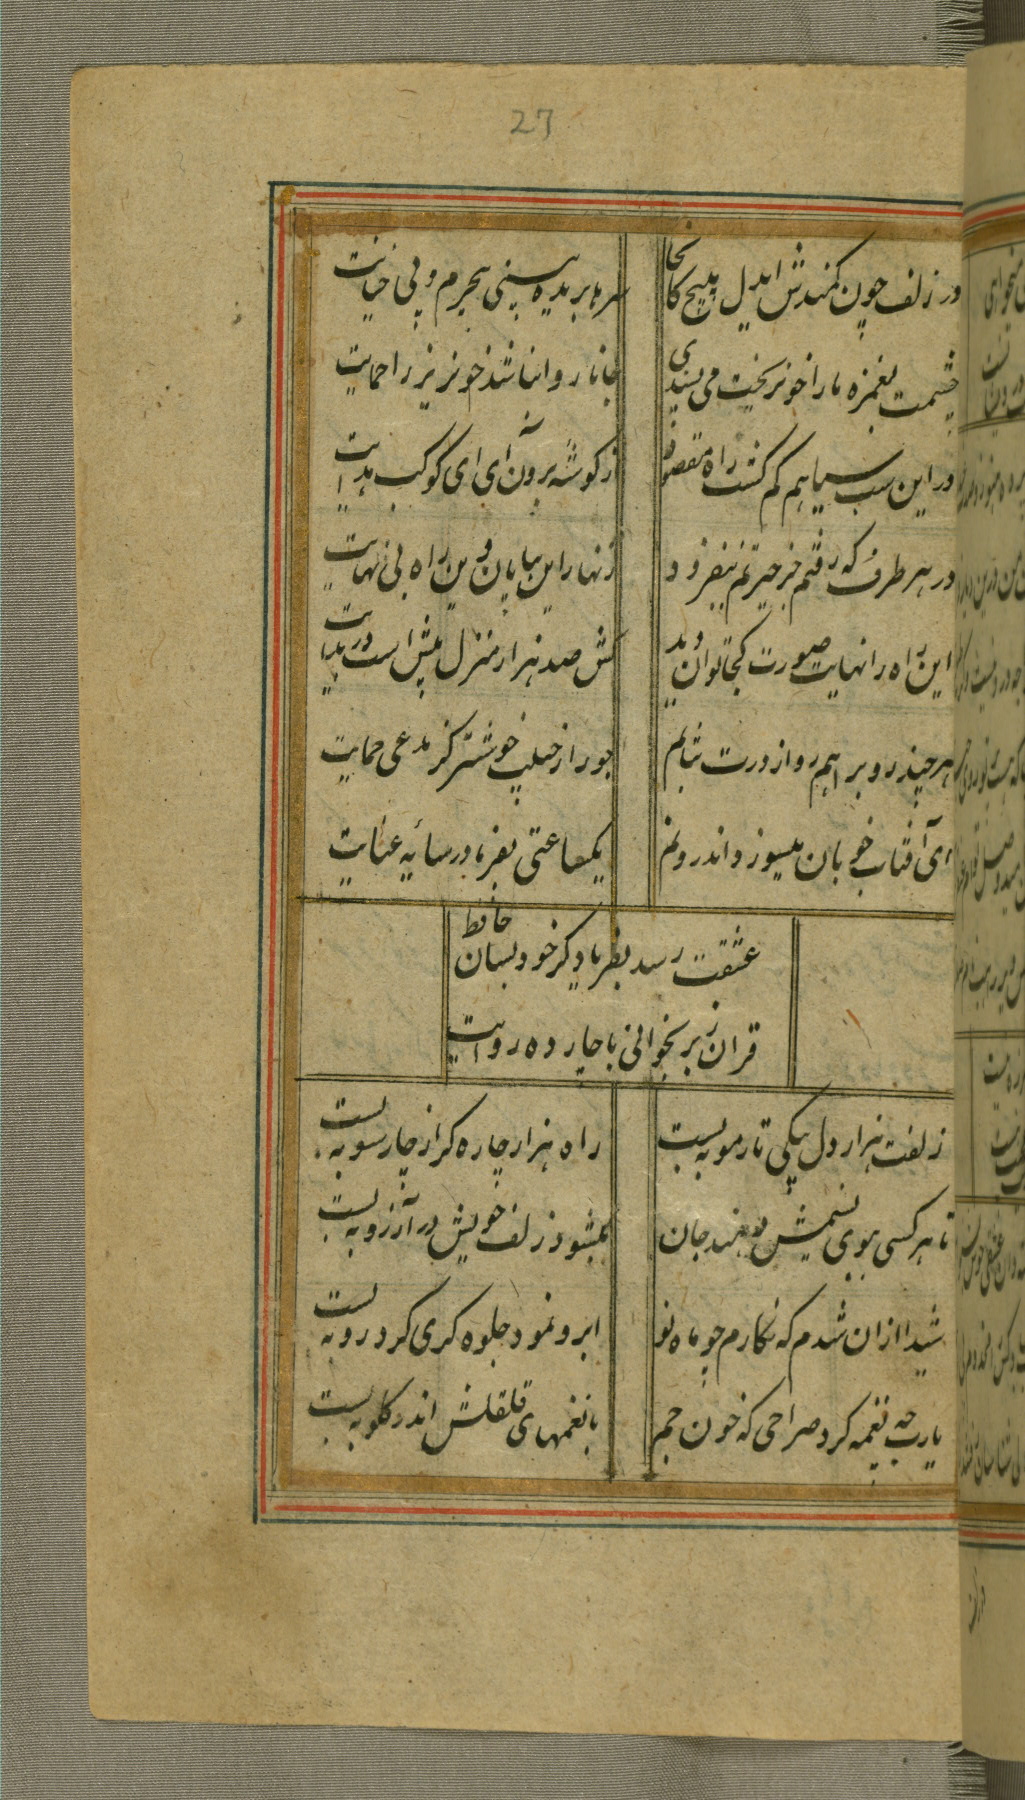 27
در زلف چون کمندش ایدل مپیچ کانجا
سرها بریده بینی بیجرم و بی خیانت
چشمت بغمزه مارا خونریخت می پسندی
جانا روا نباشد خونریز را حمایت
در این شب سیاهم گم گشت راه مقصود
از گوشه برون آی ای کوکب هدایت
در هر طرف که رفتم جز حیرتم نیفزود
زنهار این بیابان وین راه بی نهایت
این راه را نهایت صورت کجا توان دید
کش صد هزار منزل پیش است در بدایت
هر چند روبراهم رو از درت نتابم
جور از حبیب خوشتر کز مدعی حمایت
ای آفتاب خوبان میسوزد اندرونم
یکساعتی بفرما در سایه عنایت
عشقت رسد بفریاد گر خود بسان حافظ
قران ز بر بخوانی با چارده روایت
زلفت هزار دل بیکی تار مو ببست
راه هزار چاره گر از چار سو ببست
تا هر کسی ببوی نسیمش دهند جان
بگشود زلف خویش در آرزو ببست
شیدا ازان شدم که نگارم چو ماه نو
ابرو نمود جلوه گری کرد رو ببست
یارب چه نغمه کرد صراحی که خون خم
با نغمهای قلقلش اندر گلو ببست